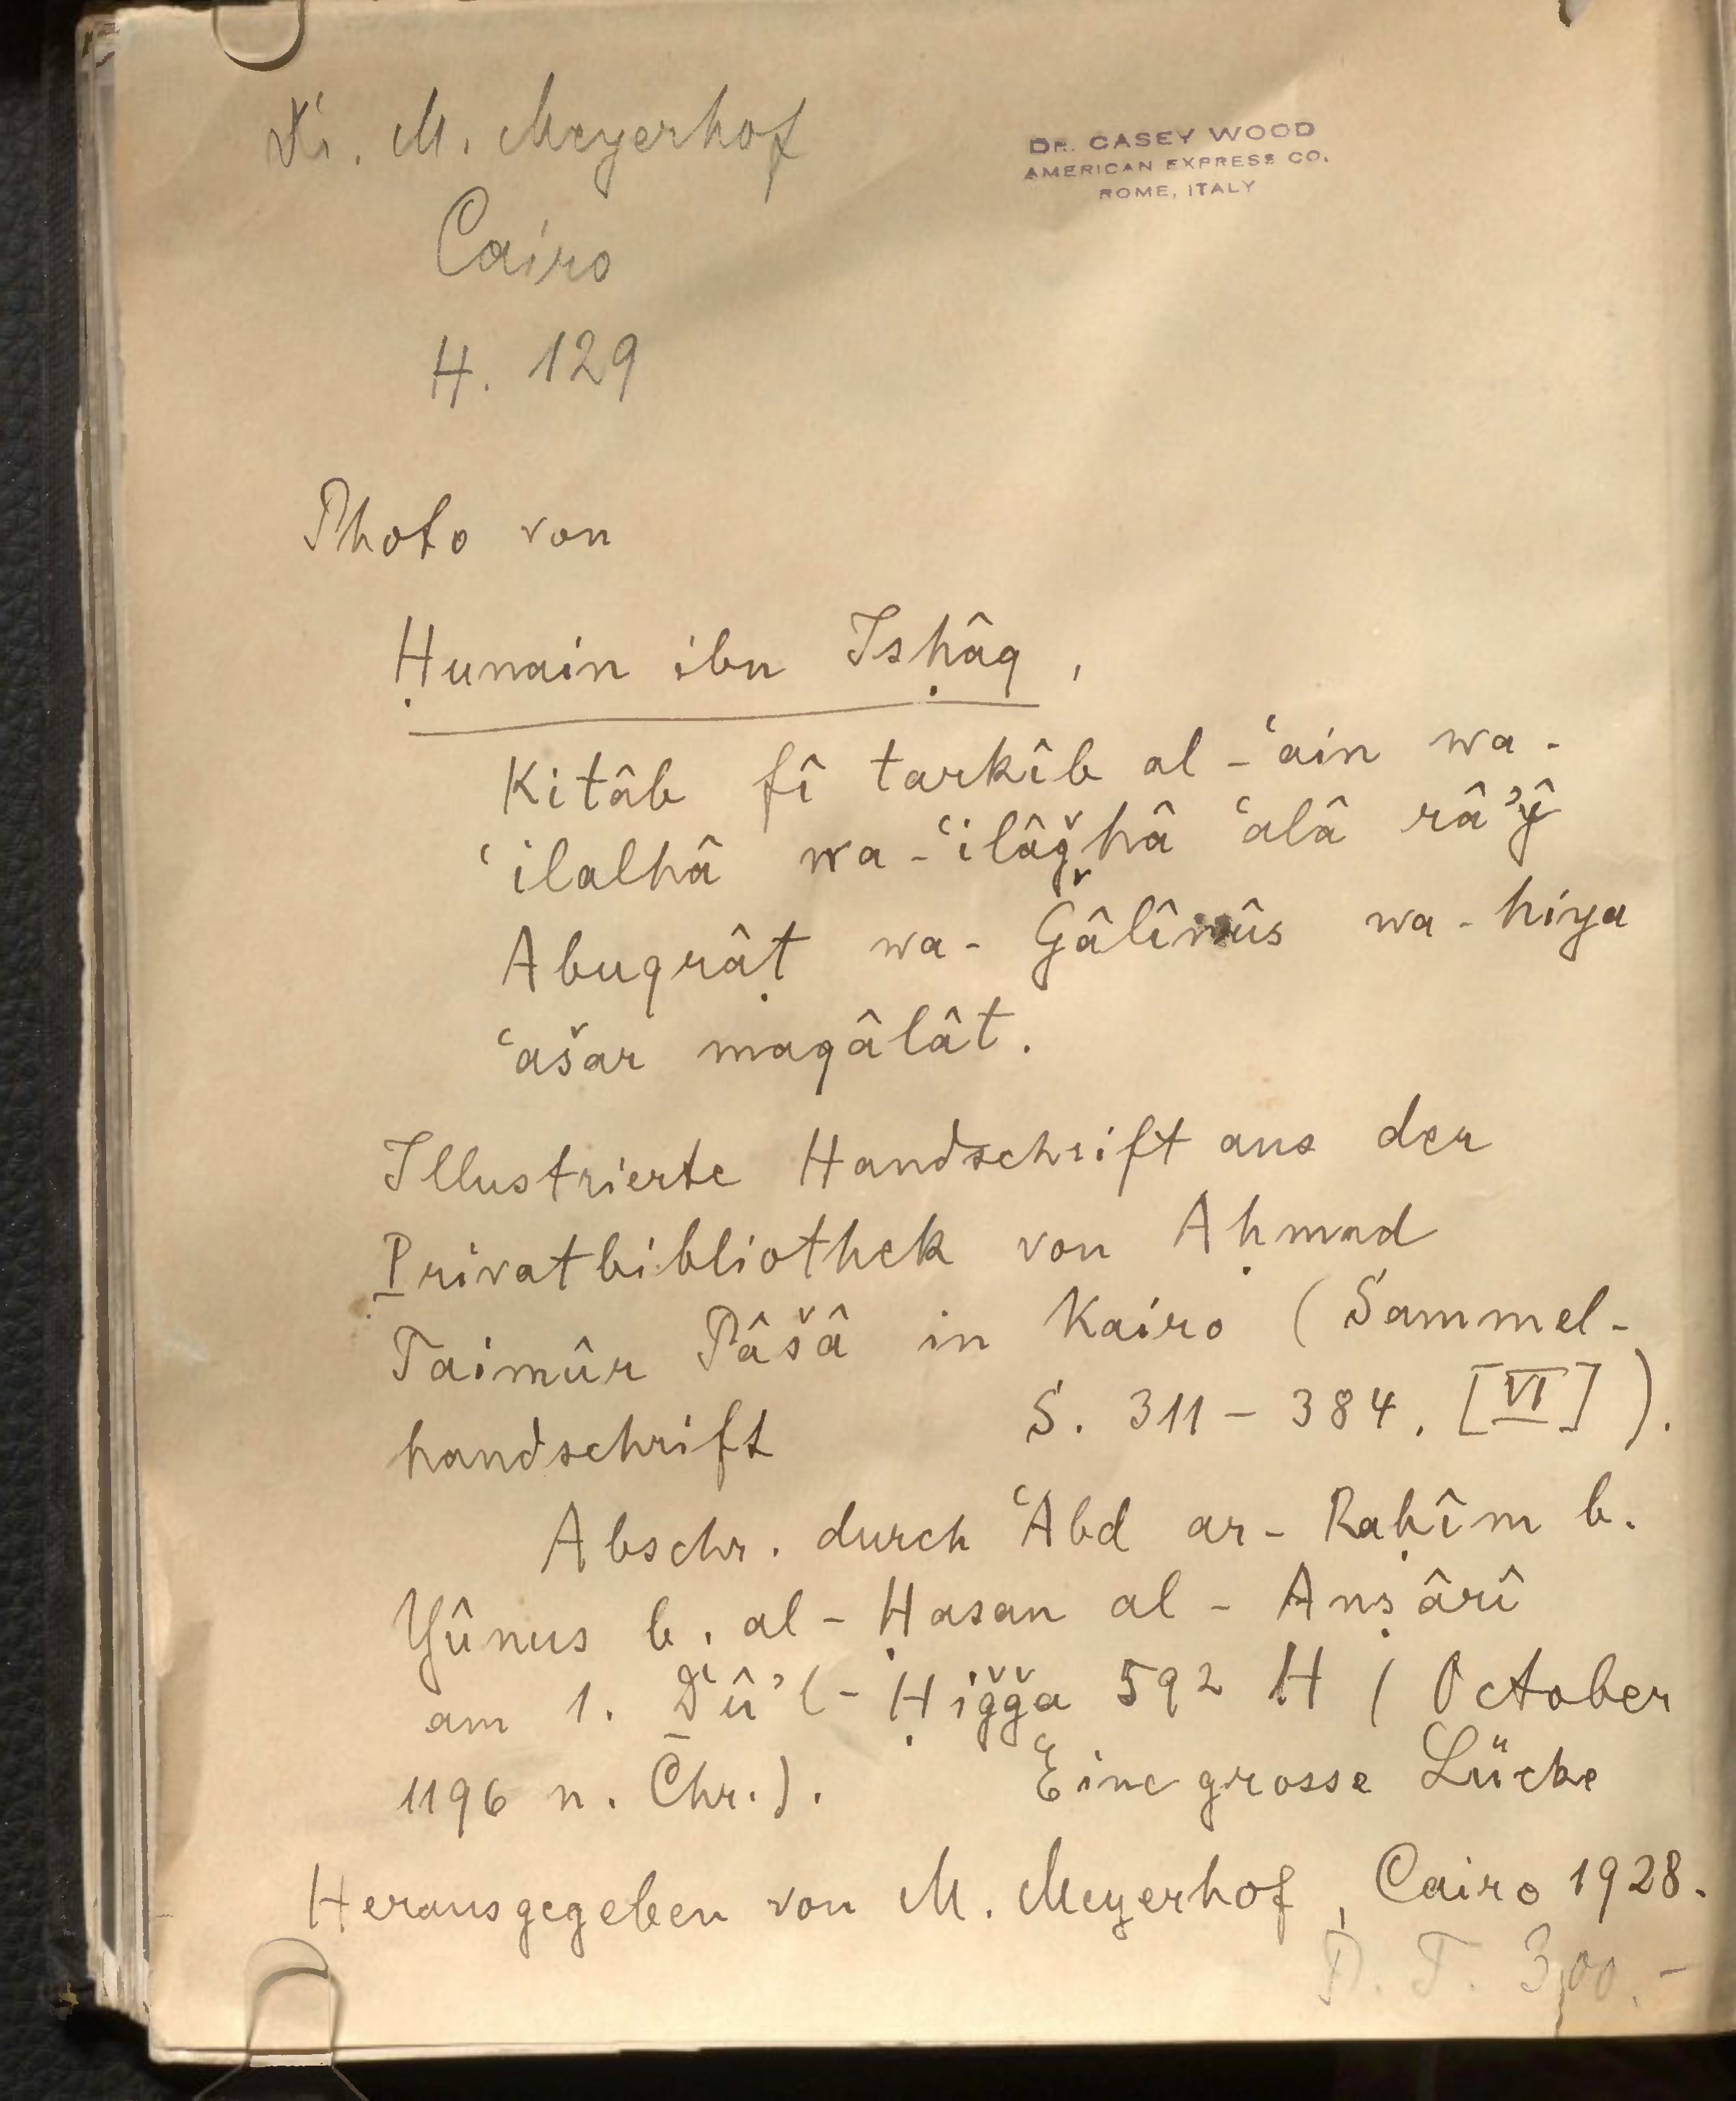 Dr. M. Meyerhof
Cairo
H. 129
DR. CASEY WOOD
AMERICAN EXPRESS CO.
ROME, ITALY
Photo von
Ḥunain ibn Isḥâq,
Kitâb fî tarkîb al-ʿain wa-
ʿilalhâ wa-ʿilâǧhâ ʿalâ râʾŷ
Abuqrâṭ wa- Ǧâlînûs wa-hiya
ʿašar maqâlât.
Illustrierte Handschrift aus der
Privatbibliothek von Aḥmad
Taimûr Pâšâ in Kairo (Sammel-
handschrift S. 311-384. [VI]).
Abschr. durch ʿAbd ar-Raḥîm b.
Yûnus b. al-Ḥasan al-Anṣârî
am 1. Ḏû'l-Ḥiǧǧa 592 H (October
1196 n. Chr.). Eine grosse Lücke
Herausgegeben von M. Meyerhof, Cairo 1928.
P. T. 300.-